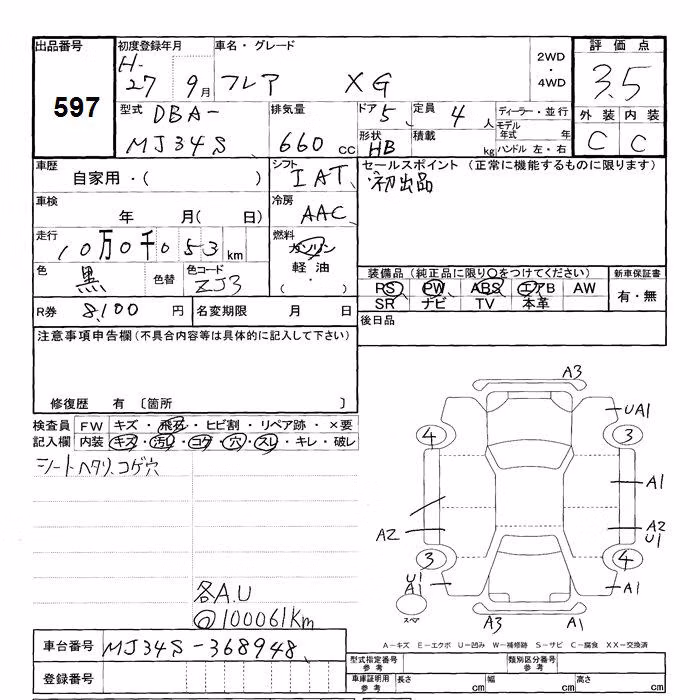 出品番号
597
初度登録年月
H-
27 9月
車名・グレード
フレア XG
2WD
・
4WD
評価点
3.5
型式 DBA-
MJ34S
排気量
660 cc
ドア 5
定員 4 人
形状
HB
積載 kg
ディーラー・並行
モデル
年式 年
ハンドル 左・右
外装 内装
C C
車歴
自家用・( )
シフト
IAT
セールスポイント (正常に機能するものに限ります)
初出品
車検
年 月( 日)
冷房
AAC
走行
10万0千053 km
燃料
ガソリン
軽油
( ・ )
色
黒
色替
色コード
ZJ3
装備品(純正品に限り○をつけてください)
PS PW ABS エアB AW
SR ナビ TV 本革
新車保証書
有・無
R券 8,100 円
名変期限 月 日
後日品
注意事項申告欄(不具合内容等は具体的に記入して下さい)
修復歴 有 〔箇所 〕
検査員
記入欄
FW キズ・飛石・ヒビ割・リペア跡・×要
内装 キズ・汚レ・コゲ・穴・スレ・キレ・破レ
シートヘタリ、コゲ穴
各A.U
@100061Km
A3
UA1
4
3
A1
A2
A2
U1
3
4
U1
A1
A1
スペア
A3
A1
A-キズ E-エクボ U-凹み W-補修跡 S-サビ C-腐食 XX-交換済
車台番号 MJ34S-368948
登録番号
型式指定番号
参考
類別区分番号
参考
車庫証明用
参考
長さ cm
幅 cm
高さ cm